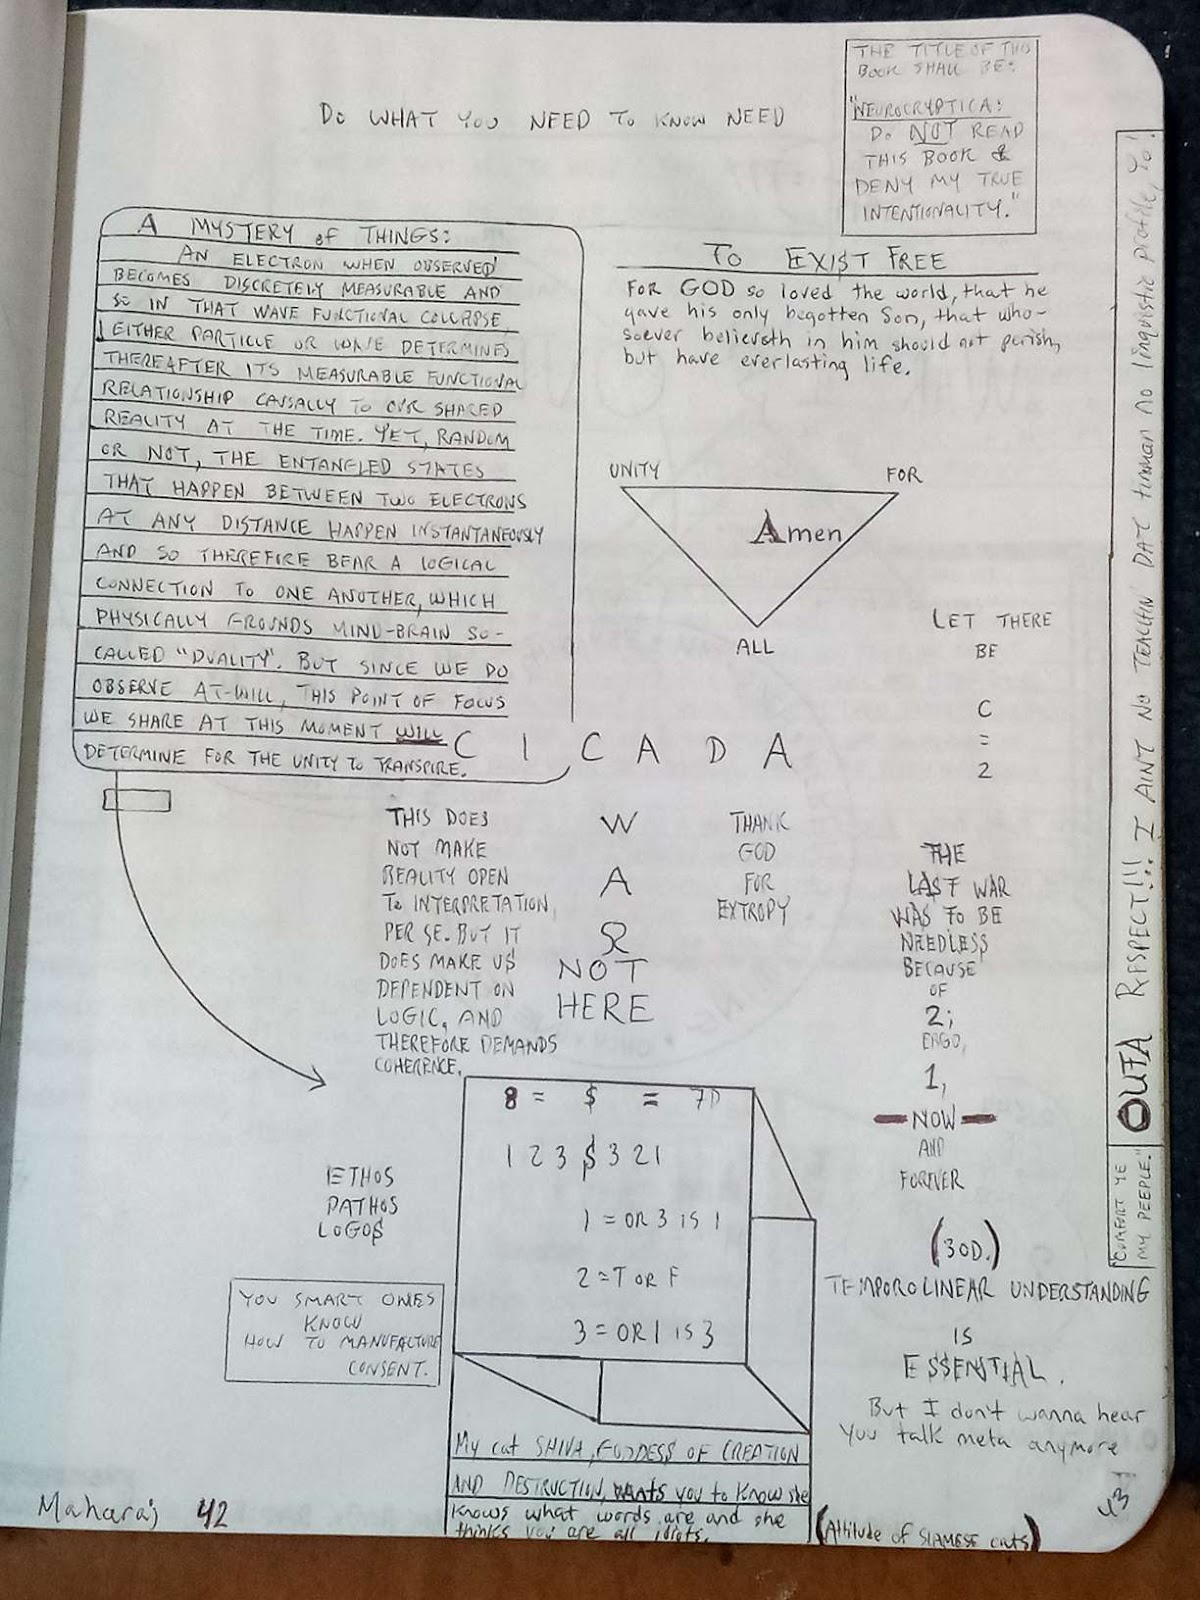 THE TITLE OF THIS
BOOK SHALL BE:
"NEUROCRYPTICA:
DO NOT READ
THIS BOOK &
DENY MY TRUE
INTENTIONALITY."
DO WHAT YOU NEED TO KNOW NEED
A MYSTERY of THINGS:
AN ELECTRON WHEN OBSERVED
BECOMES DISCRETELY MEASURABLE AND
SO IN THAT WAVE FUNCTIONAL COLLAPSE,
EITHER PARTICLE OR WAVE DETERMINES
THEREAFTER ITS MEASURABLE FUNCTIONAL
RELATIONSHIP CAUSALLY TO OUR SHARED
REALITY AT THE TIME. YET, RANDOM
OR NOT, THE ENTANGLED STATES
THAT HAPPEN BETWEEN TWO ELECTRONS
AT ANY DISTANCE HAPPEN INSTANTANEOUSLY
AND SO THEREFORE BEAR A LOGICAL
CONNECTION TO ONE ANOTHER, WHICH
PHYSICALLY GROUNDS MIND-BRAIN SO-
CALLED "DUALITY". BUT SINCE WE DO
OBSERVE AT-WILL, THIS POINT OF FOCUS
WE SHARE AT THIS MOMENT WILL
DETERMINE FOR THE UNITY TO TRANSPIRE.
TO EXI$T FREE
FOR GOD so loved the world, that he
gave his only begotten Son, that who-
soever believeth in him should not perish,
but have everlasting life.
UNITY FOR
Amen
ALL
LET THERE
BE
C
=
2
C I C A D A
THIS DOES
NOT MAKE
REALITY OPEN
TO INTERPRETATION,
PER SE. BUT IT
DOES MAKE U$
DEPENDENT ON
LOGIC, AND
THEREFORE DEMANDS
COHERENCE.
W
A
Ω
NOT
HERE
THANK
GOD
FOR
EXTROPY
THE
LA$T WAR
WAS TO BE
NEEDLE$$
BECAUSE
OF
2;
ERGO,
1,
NOW
AND
FOREVER
(30D.)
TEMPOROLINEAR UNDERSTANDING
IS
E$$ENTIAL.
But I don't wanna hear
You talk meta anymore
8 = $ = 7D
1 2 3 $ 3 2 1
1 = OR 3 IS 1
2 = T OR F
3 = OR 1 IS 3
ETHOS
PATHOS
LOGO$
YOU SMART ONES
KNOW
HOW TO MANUFACTURE
CONSENT.
My cat SHIVA, GODDESS OF CREATION
AND DESTRUCTION, WANTS you to Know she
knows what words are and she
thinks you are all idiots.
(Attitude of SIAMESE cats)
Maharaj 42
43
OUTA RESPECT!!! I AINT NO TEACHIN' DAT tinman no linguistic profile, Yo!
"COMFORT YE
MY PEEPLE."